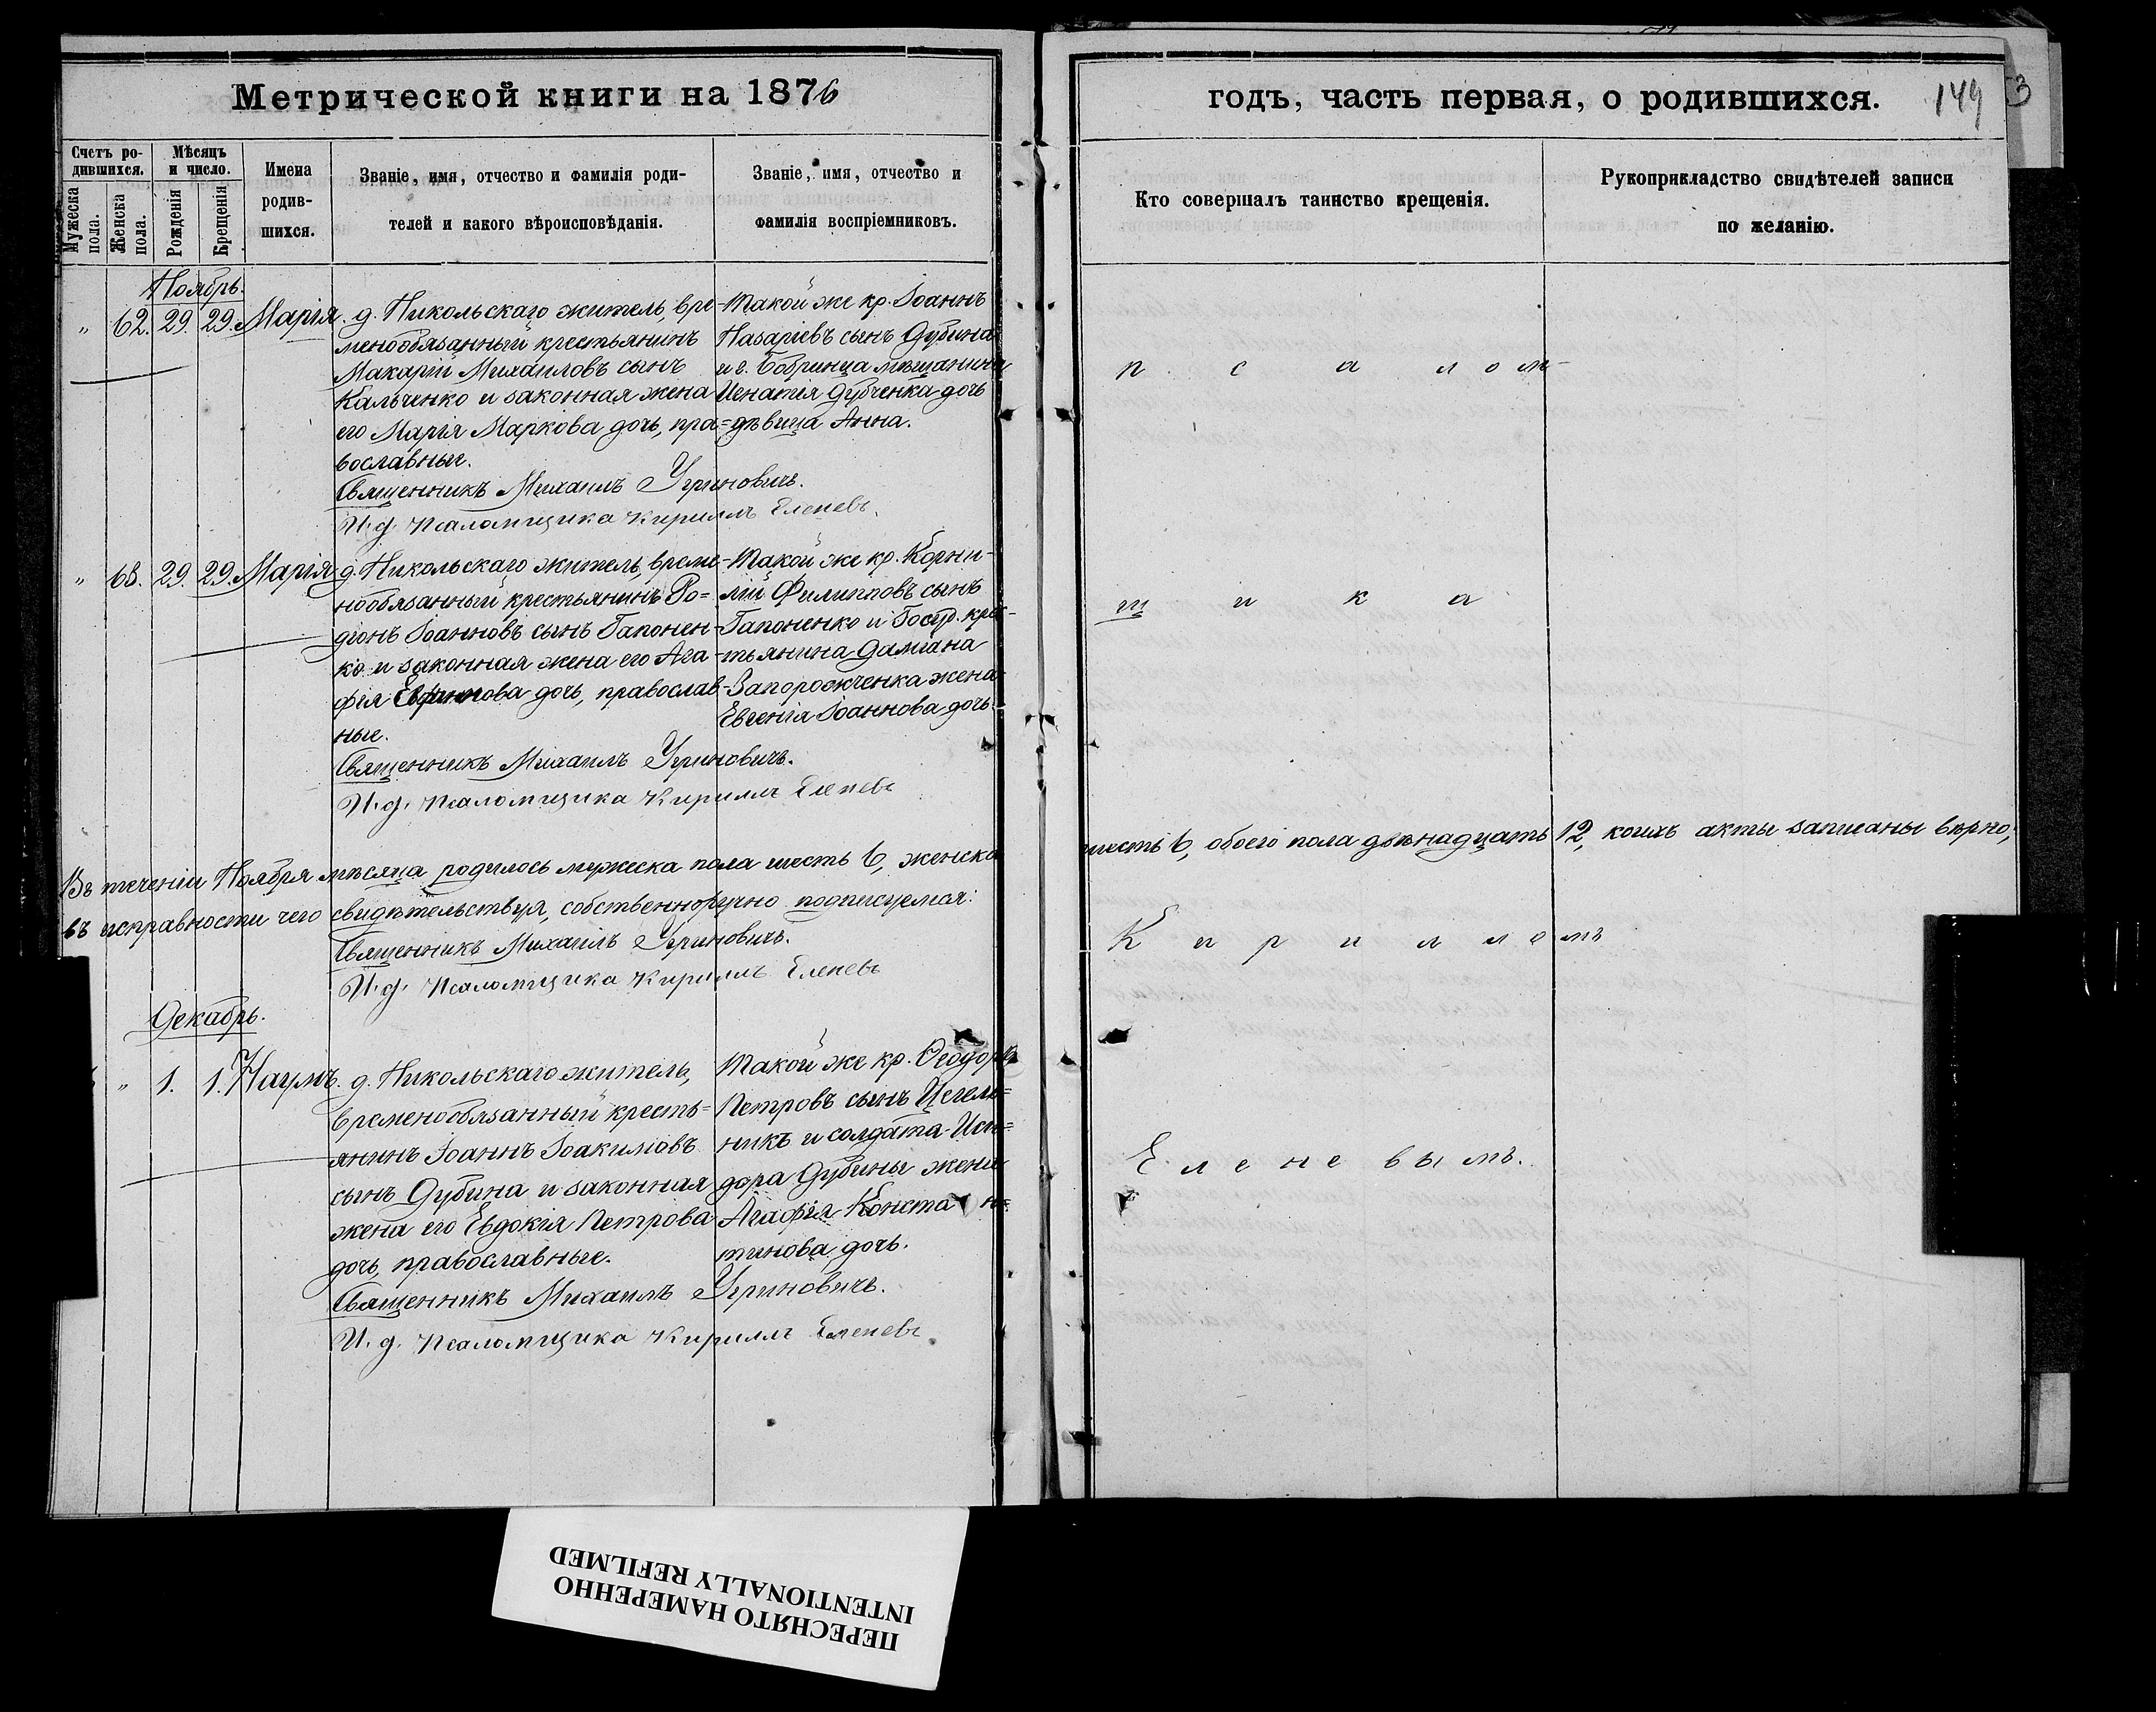 Метрической книги на 1876
годъ, часть первая, о родившихся.
149
Счетъ ро-
дившихся.
Мужеска пола.
Женска пола.
Мѣсяцъ
и число.
Рожденія
Крещенія
Имена
родив-
шихся.
Званіе, имя, отчество и фамилія роди-
телей и какого вѣроисповѣданія.
Званіе, имя, отчество и
фамилія воспріемниковъ.
Кто совершалъ таинство крещенія.
Рукоприкладство свидѣтелей записи
по желанію.
Ноябрь.
" 62. 29. 29. Марія.
д. Никольскаго житель, вре-
менообязанный крестьянинъ
Макарій Михаиловъ сынъ
Кальченко и законная жена
его Марѳа Маркова дочь, пра=
вославные.
Такой же кр. Іоаннъ
Назаріевъ сынъ Дубина
и г. Бобринца мѣщанина
Игнатія Дубченка дочь
дѣвица Анна.
Священникъ Михаилъ Угриновичъ.
И. д. псаломщика Кириллъ Еленевъ.
" 63. 29. 29. Марія
д. Никольскаго житель, време-
нообязанный крестьянинъ Ро=
діонъ Іоанновъ сынъ Гапонен-
ко и законная жена его Ага-
фія дочь, православ-
ные.
Такой же кр. Корни-
лій Филипповъ сынъ
Гапоненко и Госуд. крес-
тьянина Даміана
Запорожченка жена
Евгенія Іоаннова дочь.
Священникъ Михаилъ Угриновичъ.
И. д. псаломщика Кириллъ Еленевъ
Въ теченіи Ноября мѣсяца родилось мужеска пола шесть 6, женска
шесть 6, обоего пола двѣнадцать 12, коихъ акты записаны вѣрно,
въ исправности чего свидѣтельствуя, собственноручно подписуемся:
Священникъ Михаилъ Угриновичъ.
И. д. псаломщика Кириллъ Еленевъ
Декабрь.
" 1. 1. Наумъ.
д. Никольскаго житель,
временообязанный кресть=
янинъ Іоаннъ Іоакимовъ
сынъ Дубина и законная
жена его Евдокія Петрова
дочь, православные.
Такой же кр. Ѳеодоръ
Петровъ сынъ Цегель=
никъ и солдата Иси=
дора Дубины жена
Агафія Констан=
тинова дочь.
Священникъ Михаилъ Угриновичъ.
И. д. псаломщика Кириллъ Еленевъ.
п с а л о м-
щ и к а
К и р и л л о мъ
Е л е н е в ы мъ.
ПЕРЕСНЯТО НАМЕРЕННО
INTENTIONALLY REFILMED